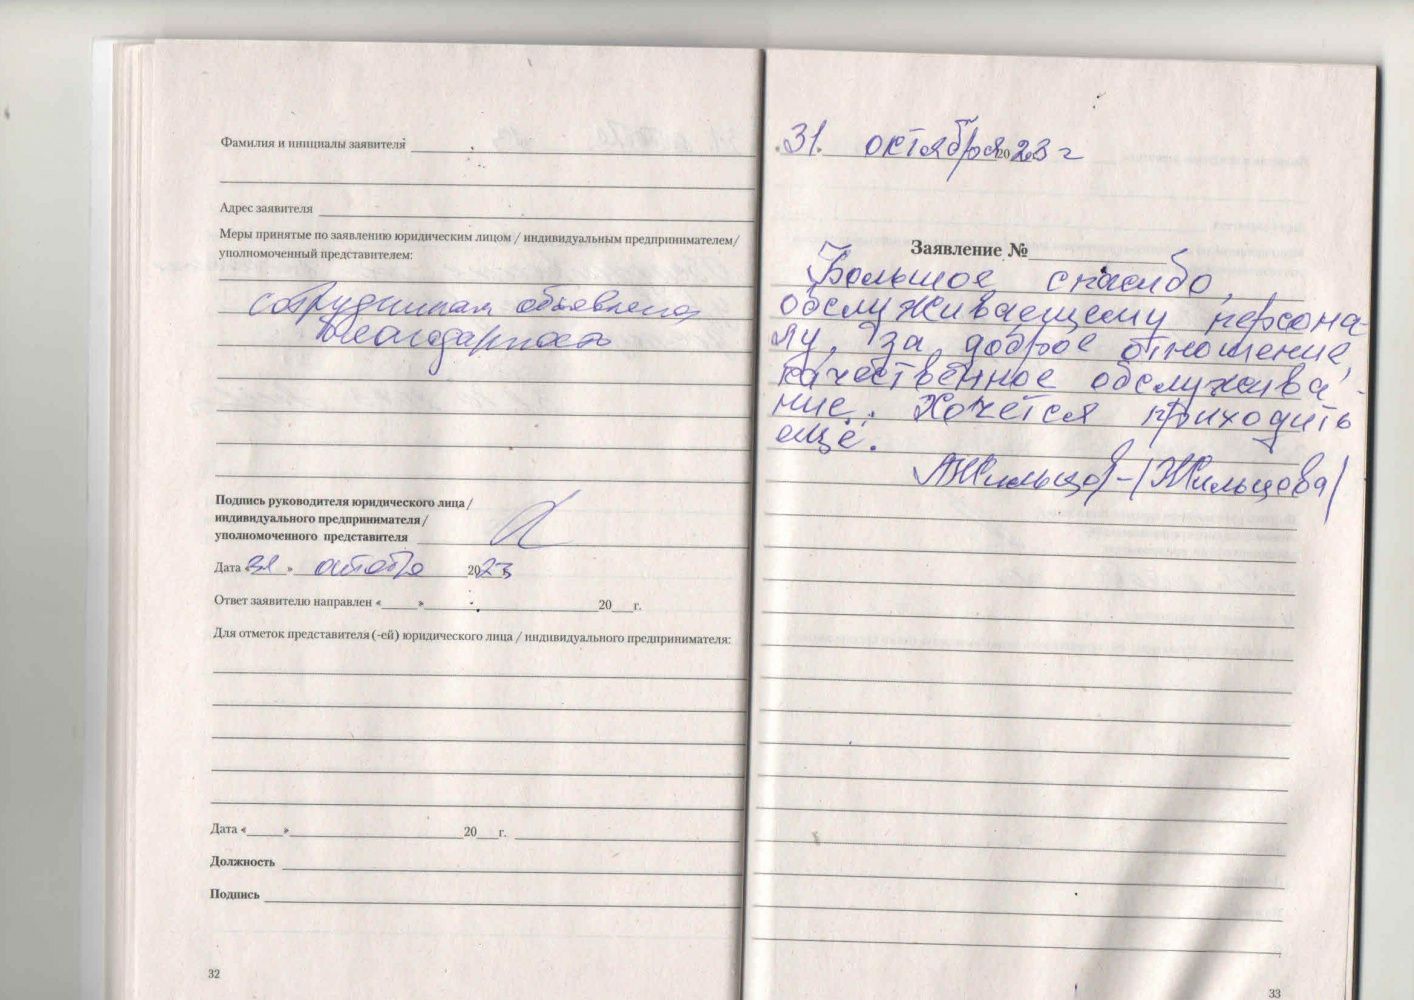 Фамилия и инициалы заявителя
Адрес заявителя
Меры принятые по заявлению юридическим лицом / индивидуальным предпринимателем/
уполномоченный представителем:
сотрудникам объявлена
благодарность
Подпись руководителя юридического лица /
индивидуального предпринимателя /
уполномоченного представителя
Дата «31» октября 2023
Ответ заявителю направлен «____»____ 20__г.
Для отметок представителя (-ей) юридического лица / индивидуального предпринимателя:
Дата «____»____ 20__г.
Должность
Подпись
32
31. октября 2023 г
Заявление №
Большое спасибо,
обслуживающему персона-
лу, за доброе отношение,
качественное обслужива-
ние. Хочется приходить
ещё.
Жильцов - (Жильцова)
33